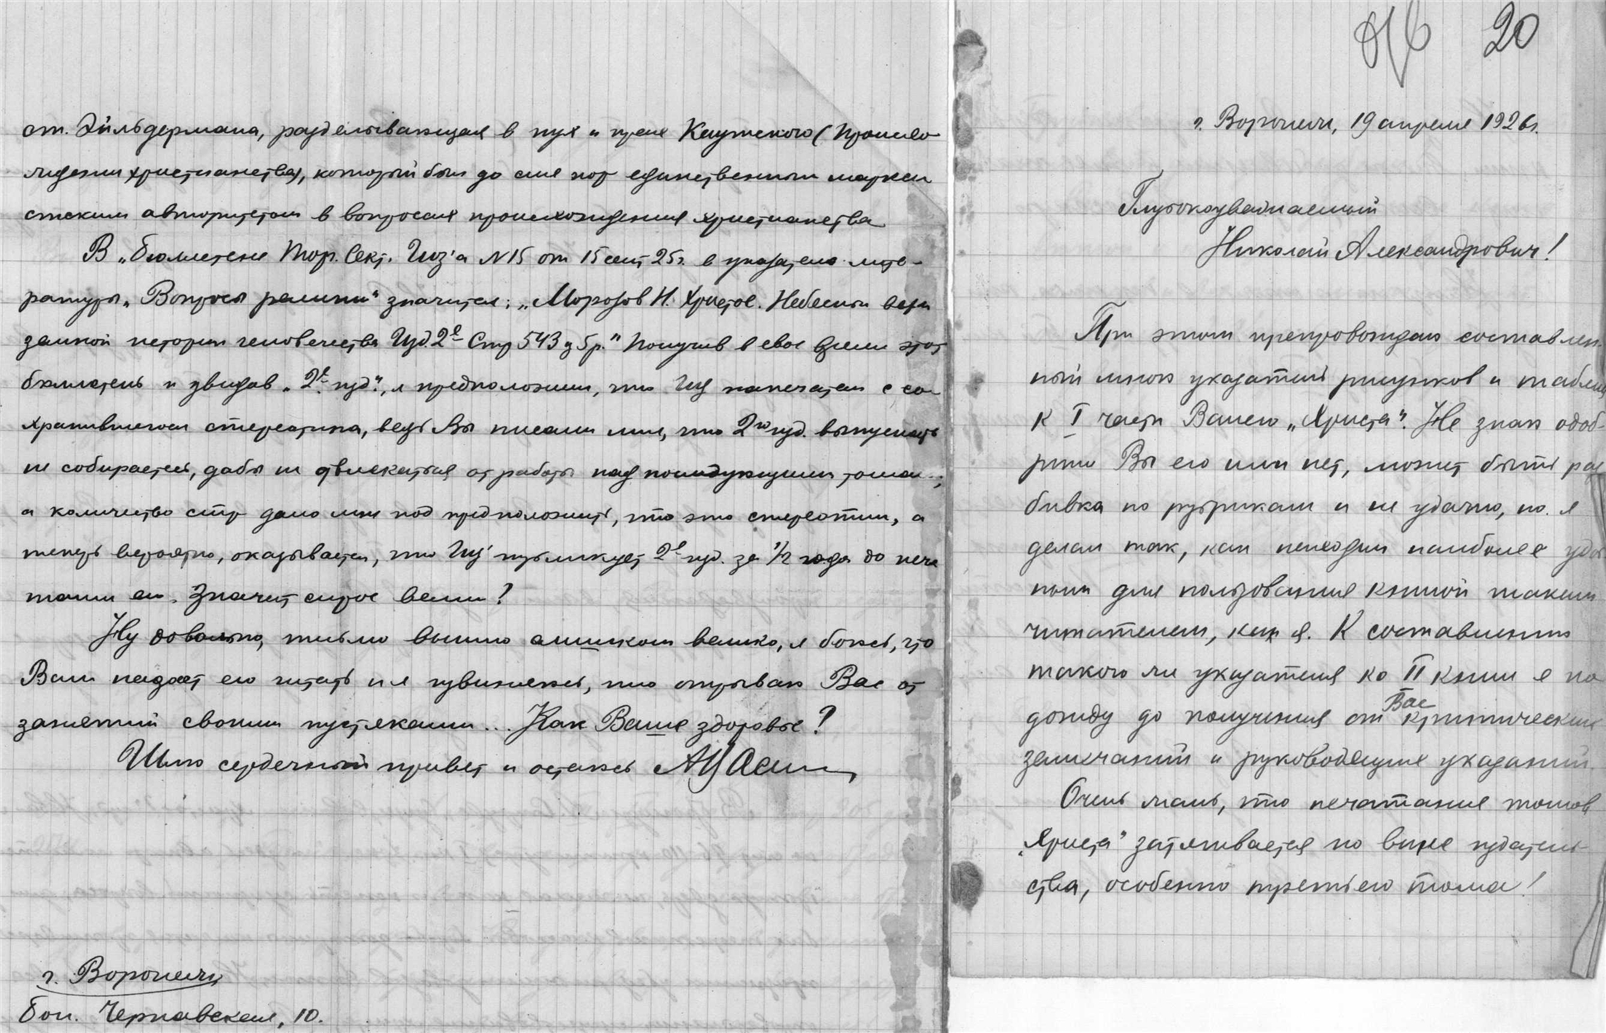 ст. Эйльдермана, разделывающая в пух и прах Каутского (Происхо-
ждение христианства), который был до сих пор единственным маркси
стским авторитетом в вопросах происхождения христианства
В „бюллетене Тор. Сект. Гиз'а N 15 от 15 сент 25 г. в указателе лите-
ратуры „Вопросы религии" значится: „Морозов Н. Христос. Небесные вехи
земной истории человечества Изд 2е Стр 543 ц 5 р." Получив в свое время этот
бюллетень и увидав „2е изд.", я предположил, что Гиз напечатал с со-
хранившегося стереотипа, ведь Вы писали мне, что 2ое изд. выпускать
не собираетесь, дабы не отвлекаться от работы над последующими томами;
а количество стр дало мне под предположить, что это стереотип, а
теперь вероятно, оказывается, что Гиз публикует 2е изд. за 1/2 года до печа
тания его. Значит спрос велик?
Ну довольно, письмо вышло слишком велико, я боюсь, что
Вам надоест его читать и я извиняюсь, что отрываю Вас от
занятий своими пустяками... Как Ваше здоровье?
Шлю сердечный привет и остаюсь
г. Воронеж
бол. Чернавская, 10.
20
г. Воронеж, 19 апреля 1926 г.
Глубокоуважаемый
Николай Александрович!
При этом препровождаю составлен
ный мною указатель рисунков и таблиц
к I части Вашего „Христа". Не знаю одоб-
рите Вы его или нет, может быть раз
бивка по рубрикам и не удачна, но я
делал так, как находил наиболее удоб
ным для пользования книгой таким
читателем, как я. К составлению
такого же указателя ко II книге я по
дожду до получения от Вас критических
замечаний и руководящих указаний.
Очень жаль, что печатание томов
„Христа" затягивается по вине издатель-
ства, особенно третьего тома!